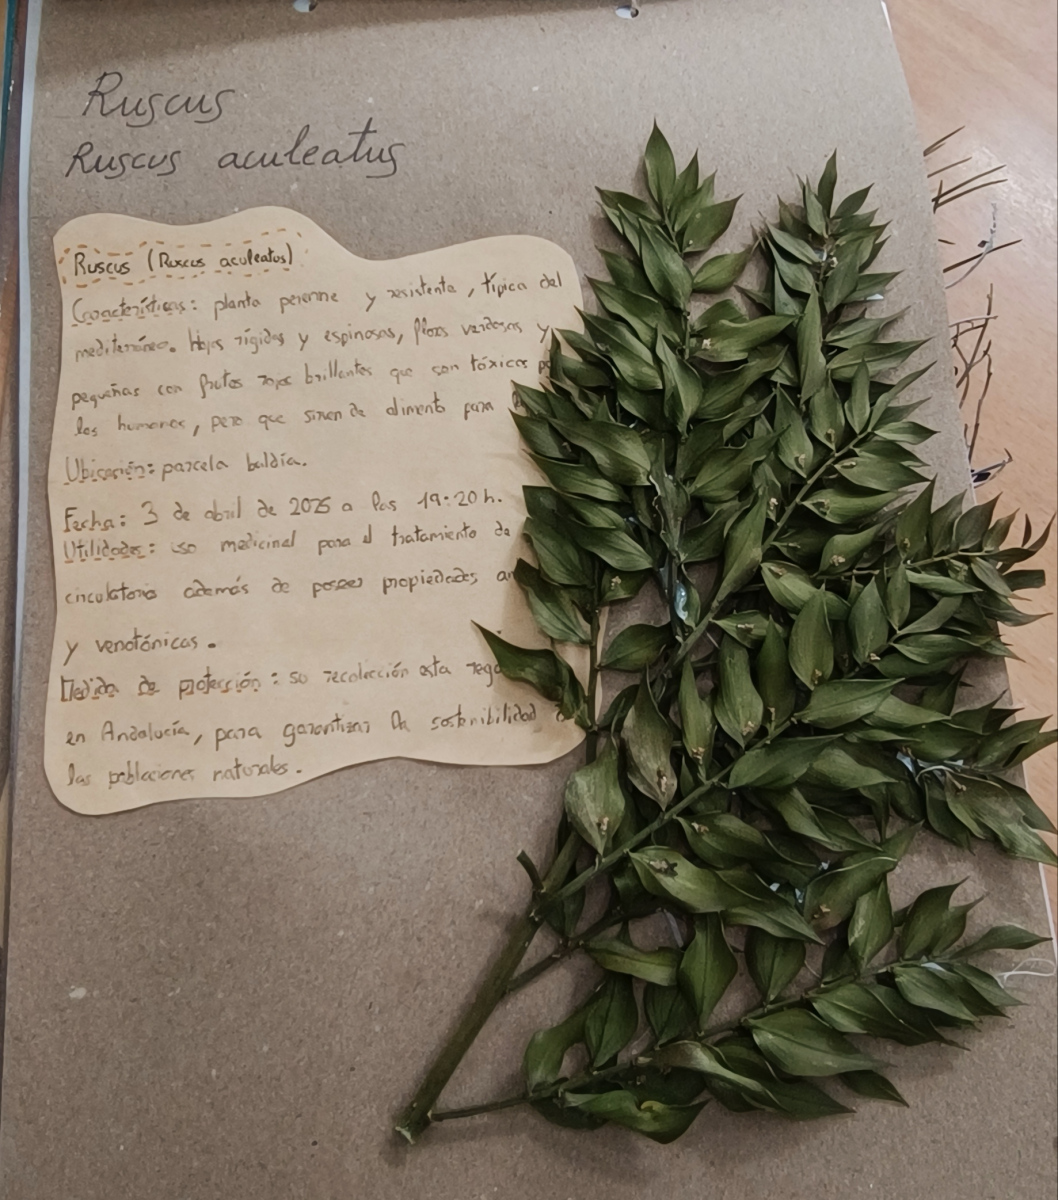 Ruscus
Ruscus aculeatus
Ruscus (Ruscus aculeatus)
Características: planta perenne y resistente, típica del
mediterráneo. Hojas rígidas y espinosas, flores verdosas y
pequeñas con frutos rojos brillantes que son tóxicos
los humanos, pero que sirven de alimento para
Ubicación: parcela baldía.
Fecha: 3 de abril de 2025 a las 19:20 h.
Utilidades: uso medicinal para el tratamiento de
circulatorio además de poseer propiedades
y venotónicas.
Medida de protección: su recolección esta
en Andalucía, para garantizar la sostenibilidad
las poblaciones naturales.